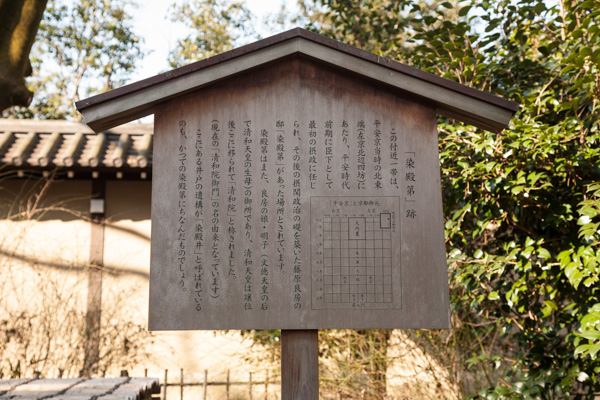 「染殿第」跡
この付近一帯は、
平安京当時の北東
端(左京北辺四坊)に
あたり、平安時代
前期に臣下として
最初の摂政に任じ
られ、その後の摂関政治の礎を築いた藤原良房の
邸「染殿第」があった場所とされています。
染殿第はまた、良房の娘・明子(文徳天皇の后
で清和天皇の生母)の御所であり、清和天皇は譲位
後ここに移られて「清和院」と称されました。
(現在の「清和院御門」の名の由来となっています)
ここにある井戸の遺構が「染殿井」と呼ばれている
のも、かつての染殿第にちなんだものでしょう。